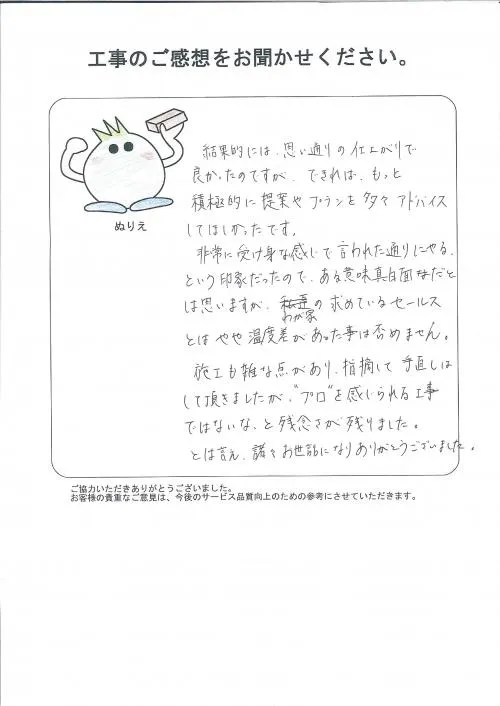 工事のご感想をお聞かせください。
ぬりえ
結果的には、思い通りの仕上がりで
良かったのですが、できれば、もっと
積極的に提案やプランを多々アドバイス
してほしかったです。
非常に受け身な感じで言われた通りにやる、
という印象だったので、ある意味真面目なだと
は思いますが、の求めているセールス
わが家
とはやや温度差があった事は否めません。
施工も雑な点があり、指摘して手直しは
して頂きましたが、"プロ"を感じられる工事
ではないな、と残念さが残りました。
とは言え、諸々お世話になりありがとうございました。
ご協力いただきありがとうございました。
お客様の貴重なご意見は、今後のサービス品質向上のための参考にさせていただきます。